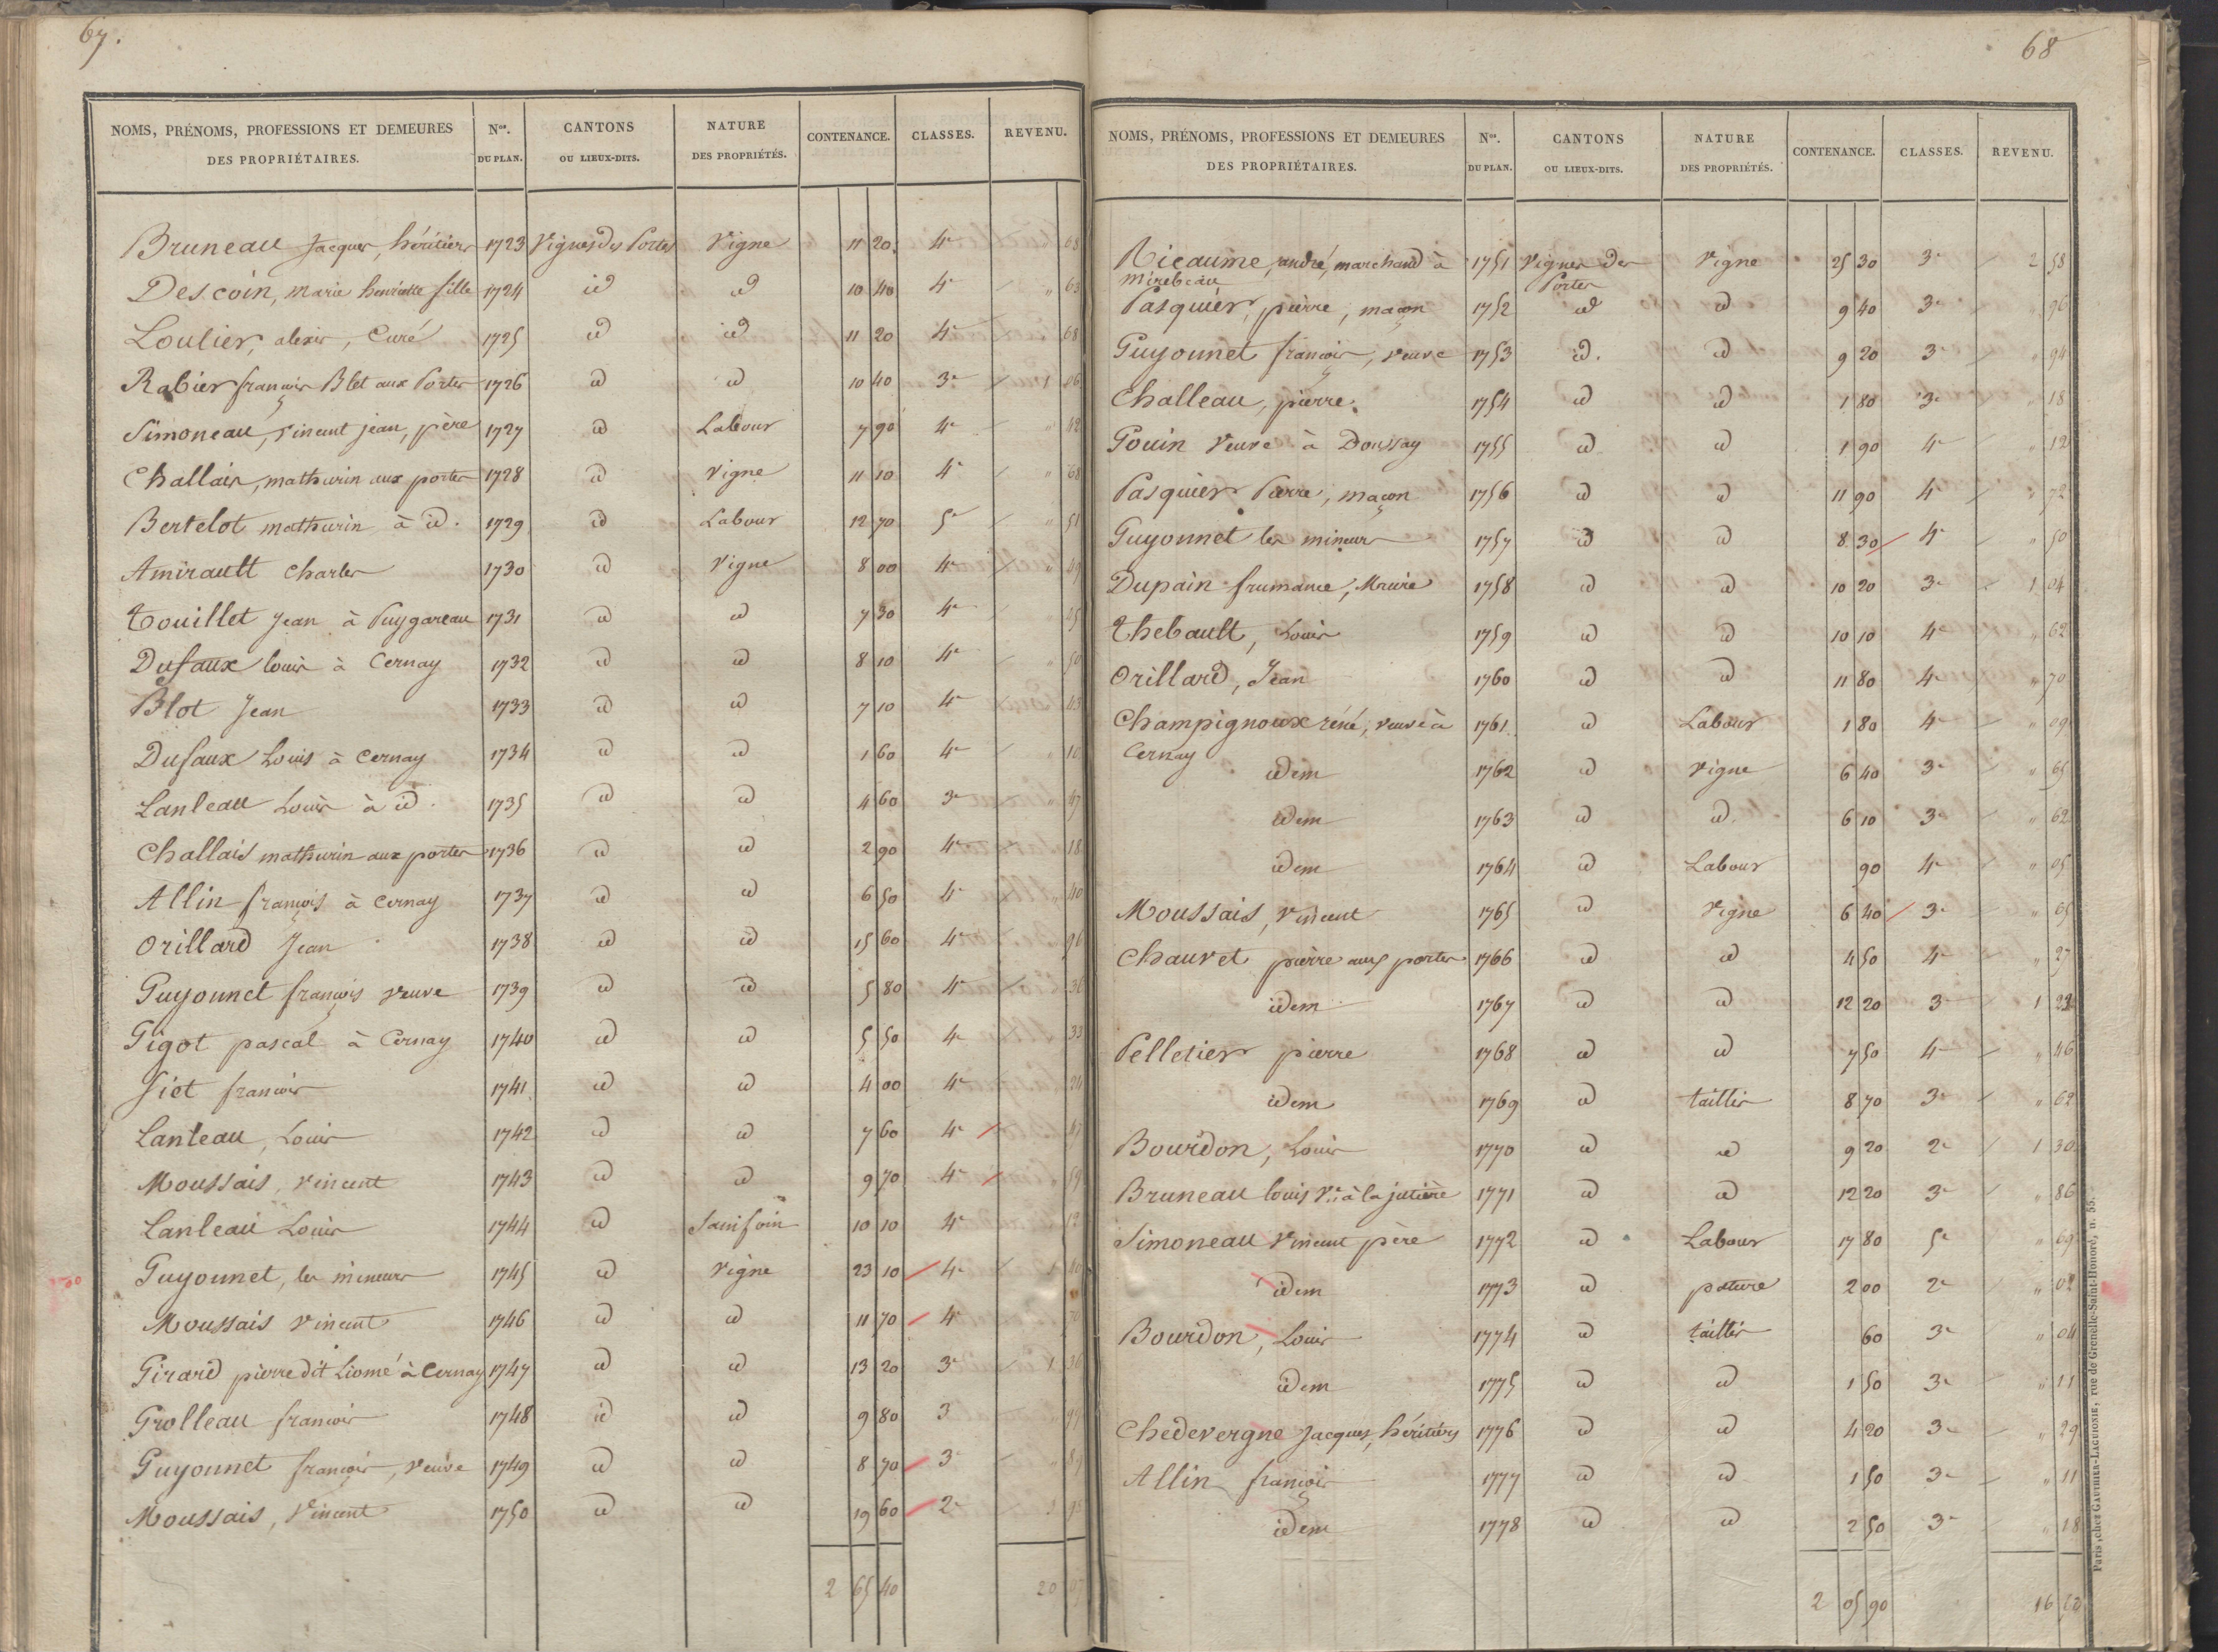 67.
NOMS, PRÉNOMS, PROFESSIONS ET DEMEURES DES PROPRIÉTAIRES. Nos. DU PLAN. CANTONS OU LIEUX-DITS. NATURE DES PROPRIÉTÉS. CONTENANCE. CLASSES. REVENU.
Bruneau Jacques, héritiers 1723 Vignes des Portes Vigne 11 20 4e " 68
Descoin, marie henriette fille 1724 id id 10 40 4e " 63
Loulier, alexis, Curé 1725 id id 11 20 4e 68
Rabier françois Blet aux Portes 1726 id id 10 40 3e 1 06
Simoneau, vincent jean, père 1727 id Labour 7 90 4e " 42
Challais, mathurin aux portes 1728 id Vigne 11 10 4e " 68
Bertelot mathurin à id. 1729 id Labour 12 70 5e " 51
Amirault Charles 1730 id Vigne 8 00 4e " 49
Touillet Jean à Puygareau 1731 id id 7 30 4e 45
Dufaux louis à Cernay 1732 id id 8 10 4e 50
Blot Jean 1733 id id 7 10 4e 43
Dufaux Louis à Cernay 1734 id id 1 60 4e 10
Lanleau Louis à id. 1735 id id 4 60 3e " 47
Challais mathurin aux portes 1736 id id 2 90 4e 18
Allin françois à Cernay 1737 id id 6 50 4e " 40
Orillard Jean 1738 id id 15 60 4e 96
Guyonnet françois veuve 1739 id id 5 80 4e 36
Gigot pascal à Cernay 1740 id id 5 50 4e 33
Siet francois 1741 id id 4 00 4e 24
Lanleau, Louis 1742 id id 7 60 4e 47
Moussais, vincent 1743 id id 9 70 4e 59
Lanleau Louis 1744 id Sainfoin 10 10 4e
Guyonnet, les mineurs 1745 id Vigne 23 10 4e 1
Moussais vincent 1746 id id 11 70 4e
Girard pierre dit Liomé à Cernay 1747 id id 13 20 3e 1 36
Grolleau francois 1748 id id 9 80 3
Guyonnet françois, veuve 1749 id id 8 70 3e
Moussais, Vincent 1750 id id 19 60 2e
2 65 40 20
68
NOMS, PRÉNOMS, PROFESSIONS ET DEMEURES DES PROPRIÉTAIRES. Nos. DU PLAN. CANTONS OU LIEUX-DITS. NATURE DES PROPRIÉTÉS. CONTENANCE. CLASSES. REVENU.
Ricaume, andré, marchand à mirebeau 1751 Vignes des Portes Vigne 25 30 3e 2 58
Pasquier, pierre, maçon 1752 id id 9 40 3e " 96
Guyonnet françois, veuve 1753 id. id 9 20 3e " 94
Challeau, pierre. 1754 id id 1 80 3e " 18
Gouin Veuve à Doussay 1755 id id 1 90 4e " 12
Pasquier Pierre, maçon 1756 id id 11 90 4e " 72
Guyonnet les mineurs 1757 id id 8 30 4e " 50
Dupain frumance, Mairé 1758 id id 10 20 3e 1 04
Thebault, Louis 1759 id id 10 10 4e " 62
Orillard, Jean 1760 id id 11 80 4e " 70
Champignoux réné, veuve à Cernay 1761 id Labour 1 80 4e " 09
idem 1762 id Vigne 6 40 3e " 65
idem 1763 id id 6 10 3e " 62
idem 1764 id Labour 90 4e " 05
Moussais, Vincent 1765 id Vigne 6 40 3e " 65
Chauvet pierre aux portes 1766 id id 4 50 4e " 27
idem 1767 id id 12 20 3e 1
Pelletier pierre 1768 id id 7 50 4e " 46
idem 1769 id taillis 8 70 3e " 62
Bourdon, Louis 1770 id id 9 20 2e 1 30
Bruneau louis Ve à la jutière 1771 id id 12 20 3e " 86
Simoneau Vincent père 1772 id Labour 17 80 5e " 69
idem 1773 id pature 2 00 2e " 02
Bourdon, Louis 1774 id taillis 60 3e " 04
idem 1775 id id 1 50 3e " 11
Chedevergne Jacques, héritiers 1776 id id 4 20 3e " 29
Allin françois 1777 id id 1 50 3e " 11
idem 1778 id id 2 50 3e " 18
2 05 90 16
Paris, chez GAUTHIER-LAGUIONIE, rue de Grenelle-Saint-Honoré, n. 55.